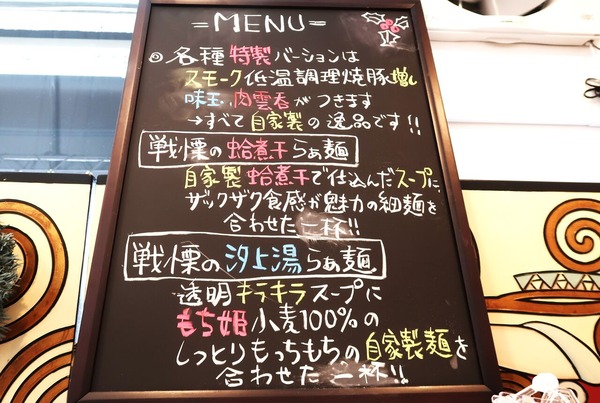 =MENU=
◎各種特製バージョンは
スモーク低温調理焼豚増し
味玉、肉雲呑がつきます
→すべて自家製の逸品です!!
戦慄の蛤煮干らぁ麺
自家製蛤煮干で仕込んだスープに、
ザックザク食感が魅力の細麺を
合わせた一杯!!
戦慄の汐上湯らぁ麺
透明キラキラスープに
もち姫小麦100%の
しっとりもっちもちの自家製麺を
合わせた一杯!!